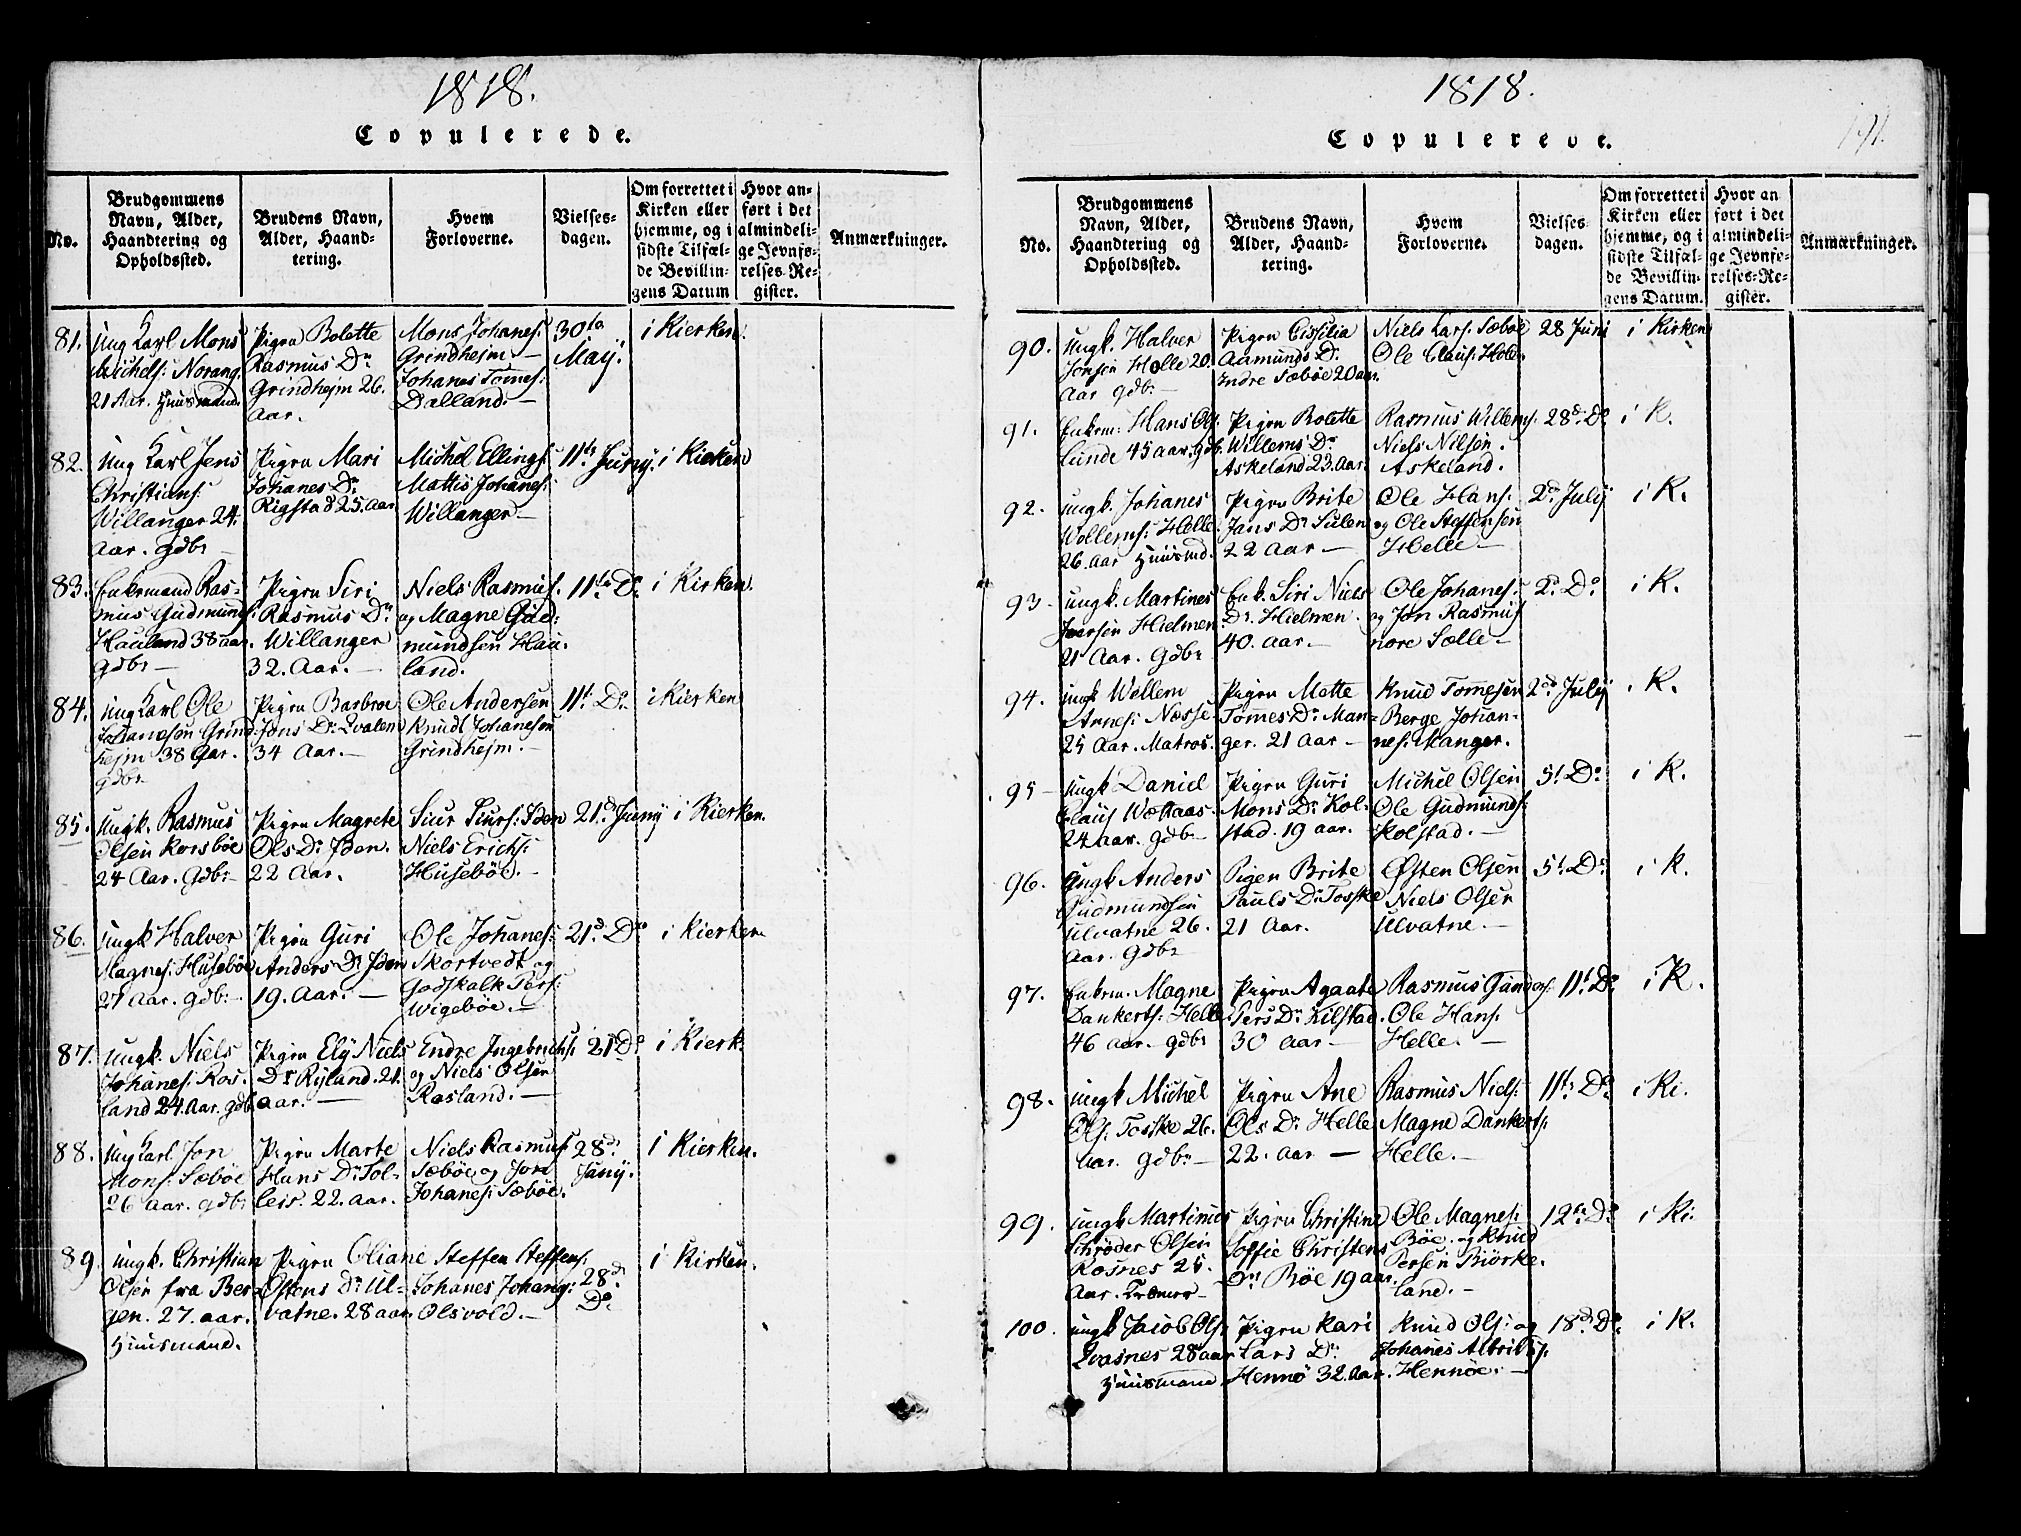 1818.
Copulerede.
No.
Brudgommens
Navn, Alder,
Haandtering og
Opholdssted.
Brudens Navn,
Alder, Haand-
tering.
Hvem
Forloverne.
Vielses-
dagen.
Om forrettet i
Kirken eller
hjemme, og i
sidste Tilfæl-
de Bevillin-
gens Datum
Hvor an-
ført i det
almindeli-
ge Jevnfø-
relses-Re-
gister.
Anmærkninger.
81.
Ung Karl Mons
Michels: Norang.
21 Aar. Huusmand.
Pigen Bolette
Rasmus Dr
Grindhejm 26.
Aar.
Mons Johanes:
Grindhejm —
Johanes Tomes:
Dalland. —
30te
Maÿ.
i Kierken.
82.
Ung Karl Jens
Christians:
Willanger 24.
Aar. gdbr —
Pigen Mari
Johanes Dr
Rigstad 25. Aar
Michel Ellings:
Mattis Johanes:
Willanger —
11te Junÿ.
i Kierken
83.
Enkemand Ras-
mus Gudmunds:
Hauland 38 aar.
gdbr —
Pigen Siri
Rasmus Dr
Willanger
32. Aar. —
Niels Rasmus:
og Magne Gud:
mundsen Hau-
land.
11te Do.
i Kirken.
84.
Ung Karl Ole
Johanesen Grind-
hejm 38 Aar.
gdbr
Pigen Barbroe
Jons Dr Qvalen
34 Aar. —
Ole Andersen
Knudt Johanesen
Grindhejm. —
11t. Do.
i Kierken
85.
Ungk. Rasmus
Olsen Korsböe
24 Aar. Gdbr —
Pigen Magrete
Ols Dr Iden.
22 Aar.
Siur Siurs: Iden
Niels Erichs:
Huseböe. —
21d. Junÿ
i Kierken.
86.
Ungk Halver
Magnes: Huseböe
27 Aar. gdb: —
Pigen Guri
Anders Dr Iden
19. Aar. —
Ole Johanes:
Skortvedt og
Godskalk Pers:
Wigeböe. —
21d. Do
i Kierken.
87.
Ungk. Niels
Johanes: Ros-
land 24. Aar. gdbr
Pigen Elÿ Niels
Dr Rÿland. 21.
aar. —
Endre Ingebrichs:
og Niels Olsen
Rosland. —
21d Do
i Kierk.
88.
Ung Karl Jon
Mons: Sæböe
26 Aar. gdbr
Pigen Marte
Hans Dr Tol-
leis. 22. Aar.
Niels Rasmus:
Sæböe og Jon
Johanes: Sæböe.
28d.
Junÿ.
i Kierken.
89.
Ungk. Christian
Olsen fra Ber-
gen. 27. aar.
Huusmand.
Pigen Oliane
Östens Dr Ul-
vatne. 28 aar
Steffen Steffens:
Johanes Johans:
Olsvold. —
28d.
Do.
i Kirken.
1818.
Copulerede.
141.
No.
Brudgommens
Navn, Alder,
Haandtering og
Opholdssted.
Brudens Navn,
Alder, Haand-
tering.
Hvem
Forloverne.
Vielses-
dagen.
Om forrettet i
Kirken eller
hjemme, og i
sidste Tilfæl-
de Bevillin-
gens Datum.
Hvor an
ført i det
almindeli-
ge Jevnfø-
relses-Re-
gister.
Anmærkninger.
90.
Ungk. Halver
Jonsen Helle 20.
Aar gdb: —
Pigen Cissilia
Aamunds D:
Indre Sæböe 20 aar.
Niels Lars: Sæböe
Ole Claus: Holde
28 Juni
i Kirken
91.
Enkem: Hans Ols:
Lunde 45 aar. gdb.
Pigen Bolette
Willems Dr
Askeland 23. Aar.
Rasmus Willems:
Niels Nilsen.
Askeland.
28d. Do
i K.
92.
Ungk. Johanes
Wollems: Helle
26. Aar Huusmd.
Pigen Brite
Jans Dr Sulen
22 Aar —
Ole Hans:
og Ole Steffensen
Helle —
2d. Julÿ
i K.
93.
Ungk. Martines
Iversen Hielmen
21 Aar. Gdbr
Enk. Siri Niels
Dr. Hielmen.
40. Aar. —
Ole Johanes:
og Jon Rasmus:
nore Sælle —
2d. Do
i K.
94.
Ungk Wollem
Arnes: Næsse
25 Aar. Matros.
Pigen Mette
Tomes Dr Man-
ger. 21 Aar —
Knud Tomesen
Berge Johan-
nes: Manger.
2d. Julÿ
i K.
95
Ungk Daniel
Claus: Wættaas
24 aar. gdb: —
Pigen Guri
Mons Dr Kol-
stad. 19 aar.
Michel Olsen
Ole Gudmunds:
Kolstad. —
5t. Do
i K.
96.
Ungk Anders
Gudmundsen
Ulvatne 26.
Aar. Gdbr
Pigen Brite
Pauls Dr Toske
21 Aar.
Østen Olsen
Niels Olsen
Ulvatne. —
5t. Do.
i K.
97.
Enkem. Magne
Dankerts: Helle
46 aar. gdbr
Pigen Agaate
Pers Dr Kilstad.
30 Aar —
Rasmus
Ole Hans:
Helle. —
11t. Do
i K.
98.
Ungk Michel
Ols: Toske 26.
Aar. gdbr —
Pigen Ane
Ols Dr Helle
22. Aar —
Rasmus Niels:
Magne Dankerts:
Helle. —
11te Do
i Ki.
99.
Ungk Martinus
Schröder Olsen
Rosnes 25.
Aar.
Pigen Christine
Soffie Christens
Dr Böe 19 aar.
Ole Magnes:
Böe. og Knud
Persen Biörke-
land. —
12te Do
i Ki.
100.
Ungk Jacob Ols:
Qvasnes 28 aar
Huusmand
Pigen Kari
Lars Dr
Hennö 32. Aar.
Knud Ols: og
Johanes Albrikts:
Hennöe. —
18d. Do.
i K.